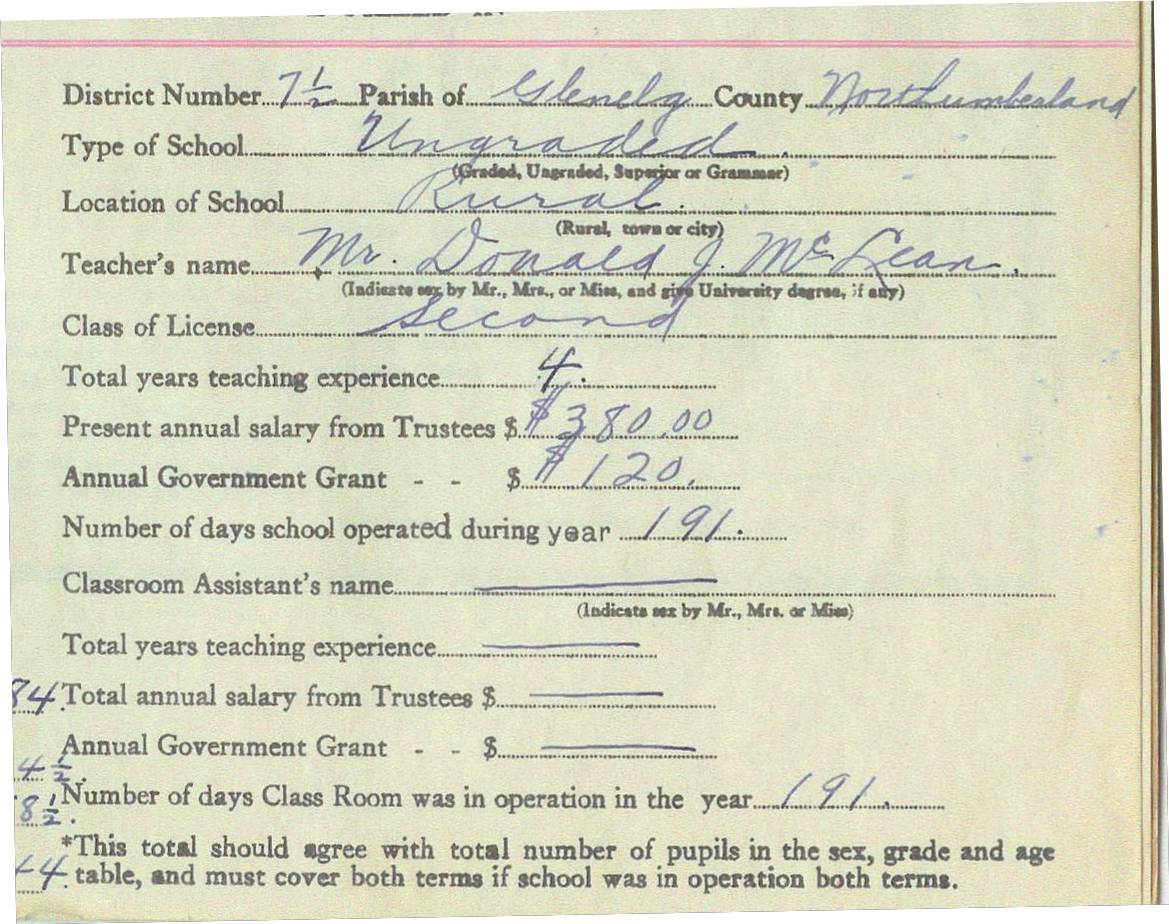 District Number 7½ Parish of Glenelg County Northumberland
Type of School Ungraded.
(Graded, Ungraded, Superior or Grammar)
Location of School Rural.
(Rural, town or city)
Teacher's name Mr. Donald J. McLean.
(Indicate sex by Mr., Mrs., or Miss, and give University degree, if any)
Class of License Second
Total years teaching experience 4.
Present annual salary from Trustees $ $380.00
Annual Government Grant - - $ $120.
Number of days school operated during year 191.
Classroom Assistant's name
(Indicate sex by Mr., Mrs. or Miss)
Total years teaching experience
84. Total annual salary from Trustees $
Annual Government Grant - - $
4½.
Number of days Class Room was in operation in the year 191.
8½.
*This total should agree with total number of pupils in the sex, grade and age
4. table, and must cover both terms if school was in operation both terms.